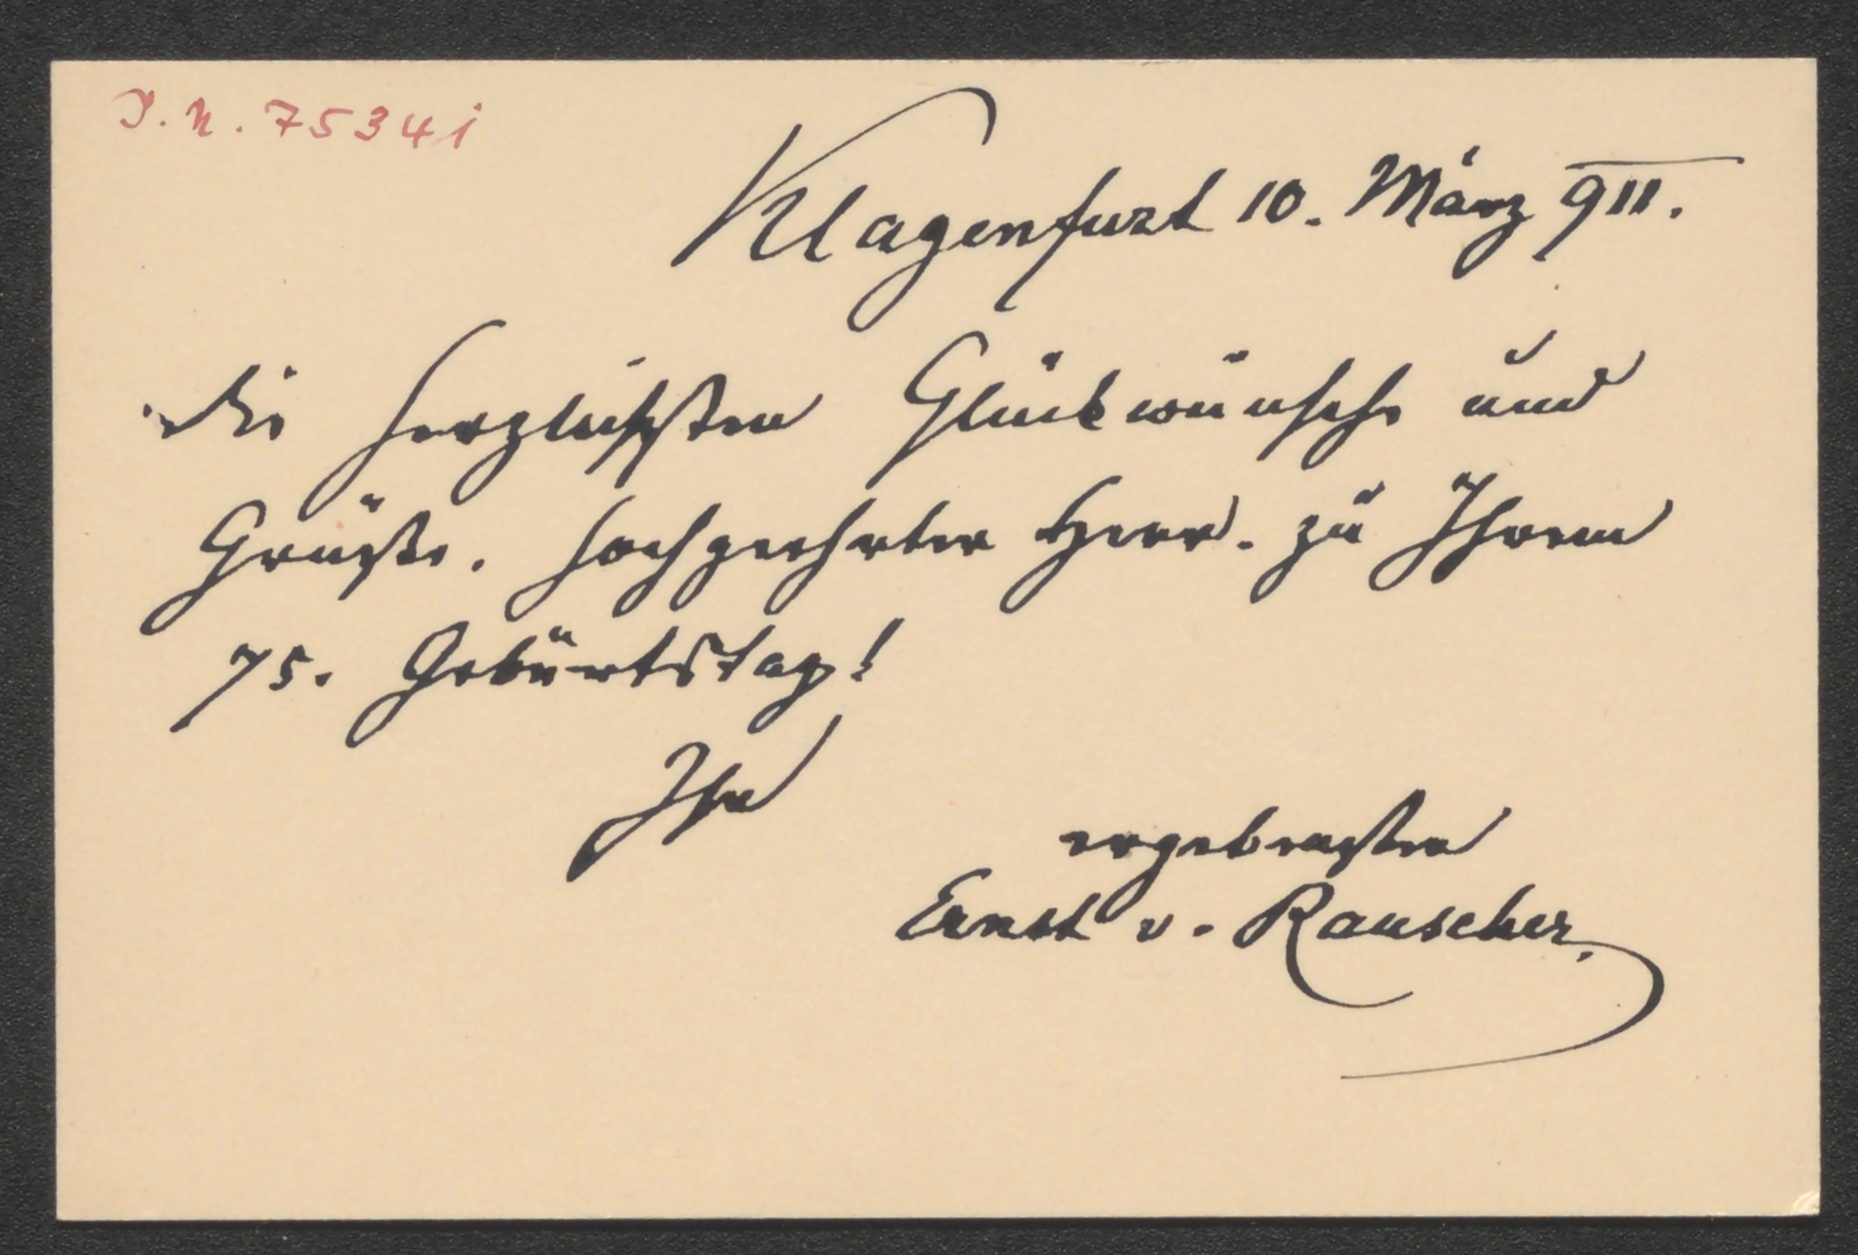 I.N. 75341
Klagenfurt 10. März 911.
Die herzlichsten Glückwünsche und
Grüße, hochgeehrter Herr, zu Ihrem
75. Geburtstag!
Ihr
ergebenster
Ernst v. Rauscher.